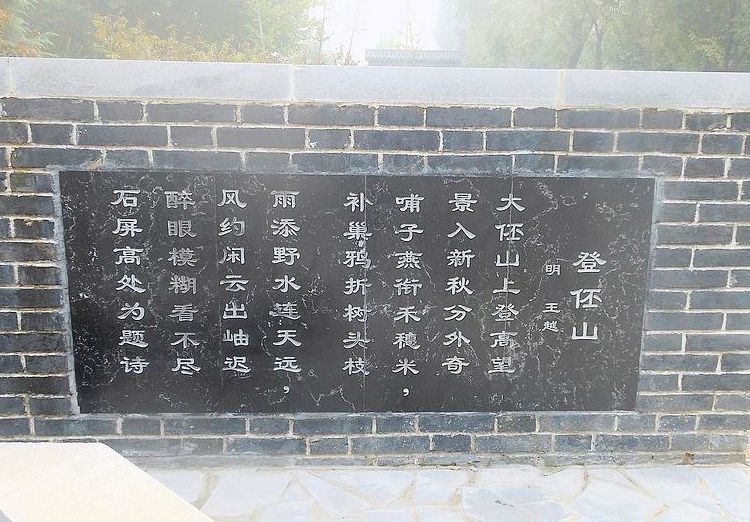 登伾山
明 王越
大伾山上登高望
景入新秋分外奇
哺子燕衔禾穗米，
补巢鸦折树头枝
雨添野水连天远，
风约闲云出岫迟
醉眼模糊看不尽
石屏高处为题诗